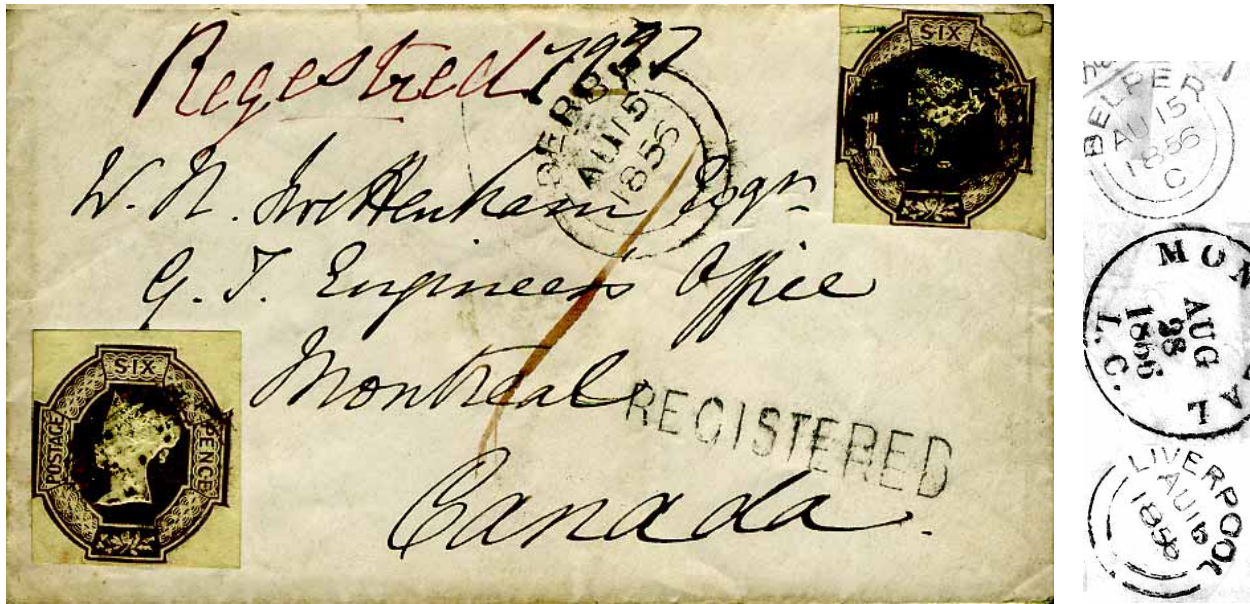 Registred 7937
DERBY
AU 15
1856
SIX
W. N. Swettenham Esqr
G. T. Engineers Office
Montreal
Canada.
REGISTERED
SIX
POSTAGE
PENCE
BELPER
AU 15
1856
C
MONTREAL
AUG
28
1856
L.C.
LIVERPOOL
AU 16
1856